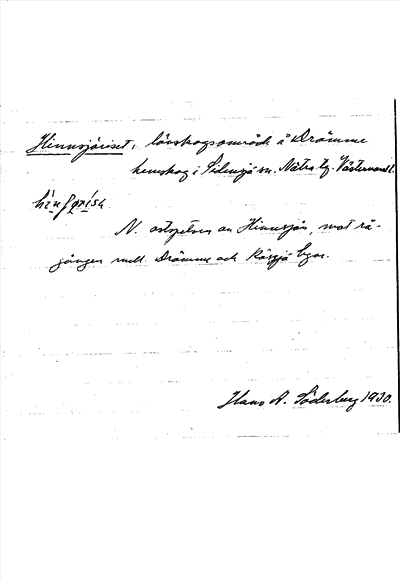 Hinnsjöriset, lövskogsområde å Drömme
hemskog i Sidensjö sn. Nätra tg. Västernorrl.
N. ostspetsen av Hinnsjön, mot rå-
gången mell. Drömme och Rössjö byar.
Hans A. Söderberg 1930.